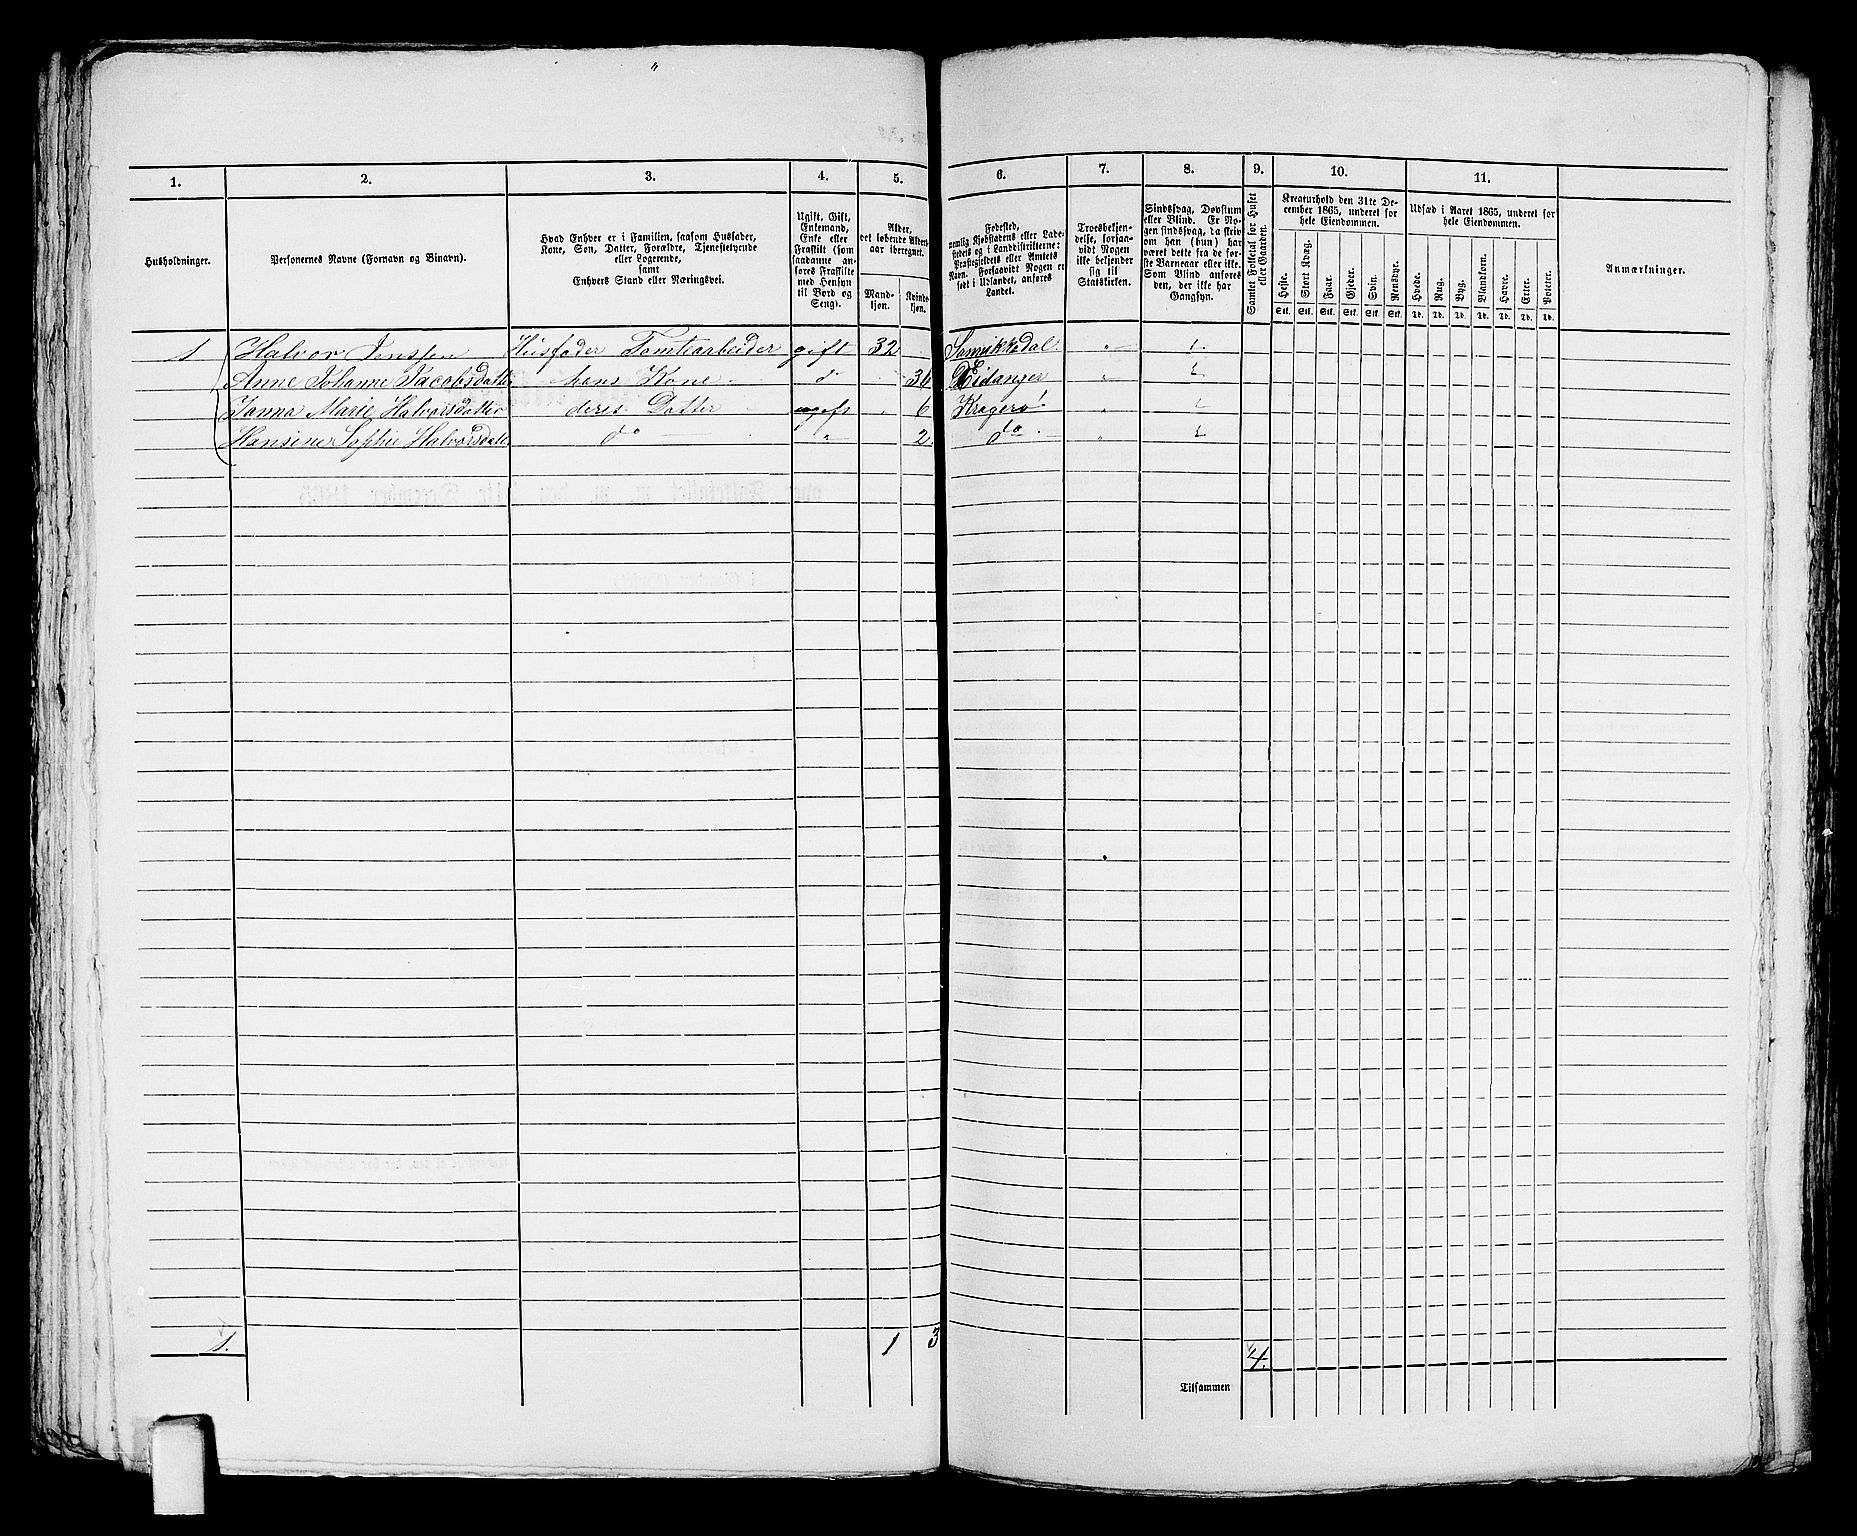 "
1. 2. 3. 4. 5. 6. 7. 8. 9. 10. 11.
Husholdninger.
Personernes Navne (Fornavn og Binavn).
Hvad Enhver er i Familien, saasom Husfader,
Kone, Søn, Datter, Forældre, Tjenestetyende
eller Logerende,
samt
Enhvers Stand eller Næringsvei.
Ugift, Gift,
Enkemand,
Enke eller
Fraskilt (som
saadanne an-
føres Fraskilte
med Hensyn
til Bord og
Seng).
Alder,
det løbende Alders-
aar iberegnet.
Mand-
kjøn.
Kvinde-
kjøn.
Fødested,
nemlig Kjøbstadens eller Lade-
stedets og i Landdistrikterne:
Præstegjeldets eller Amtets
Navn. Forsaavidt Nogen er
født i Udlandet, anføres
Landet.
Troesbekjen-
delse, forsaa-
vidt Nogen
ikke bekjender
sig til
Statskirken.
Sindssvag, Døvstum
eller Blind. Er No-
gen sindssvag, da skriv
om han (hun) har
været dette fra de før-
ste Barneaar eller ikke.
Som Blind anføres
den, der ikke har
Gangsyn.
Samlet Folketal for Huset
eller Gaarden.
Kreaturhold den 31te De-
cember 1865, underet for
hele Eiendommen.
Heste. Stort Kvæg. Faar. Gjeder. Svin. Rensdyr.
Stk. Stk. Stk. Stk. Stk. Stk.
Udsæd i Aaret 1865, underet for
hele Eiendommen.
Hvede. Rug. Byg. Blandkorn. Havre. Erter. Poteter.
Td. Td. Td. Td. Td. Td. Td.
Anmærkninger.
1 Halvor Jenssen Husfader Tomtearbeider gift 32 Sannikkedal. "
Anne Johanne Jacobsdatter hans Kone do 36 Eidanger "
Janna Marie Halvorsdatter deres Datter ugift " 6 Kragerø "
Hansine Sophie Halvorsdatt do " 2 do "
1. 1 3 4.
Tilsammen